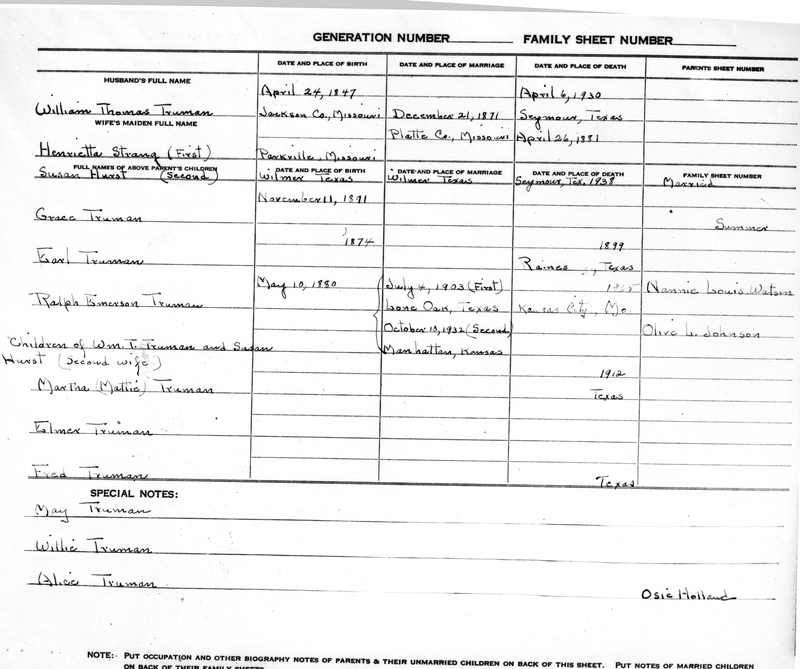 GENERATION NUMBER FAMILY SHEET NUMBER
DATE AND PLACE OF BIRTH DATE AND PLACE OF MARRIAGE DATE AND PLACE OF DEATH PARENTS SHEET NUMBER
HUSBAND'S FULL NAME
April 24, 1847 April 6, 1930
William Thomas Truman Jackson Co., Missouri December 21, 1871 Seymour, Texas
WIFE'S MAIDEN FULL NAME
Platte Co., Missouri April 26, 1881
Henrietta Strang (First) Parkville, Missouri
FULL NAMES OF ABOVE PARENT'S CHILDREN DATE AND PLACE OF BIRTH DATE AND PLACE OF MARRIAGE DATE AND PLACE OF DEATH FAMILY SHEET NUMBER
Susan Hurst (Second) Wilmer Texas Wilmer Texas Seymour, Tex. 1938 Married
November 11, 1891
Grace Truman Summer
1874 1899
Earl Truman Raines , Texas
May 10, 1880 July 4, 1903 (First) Nannie Louis Watson
Ralph Emerson Truman Lone Oak, Texas Kansas City, Mo
October 10, 1932 (Second) Olive L. Johnson
Children of Wm. T. Truman and Susan Manhattan, Kansas
Hurst (Second wife)
1912
Martha (Mattie) Truman Texas
Elmer Truman
Fred Truman Texas
SPECIAL NOTES:
May Truman
Willie Truman
Alice Truman Osie Holland
NOTE:- PUT OCCUPATION AND OTHER BIOGRAPHY NOTES OF PARENTS & THEIR UNMARRIED CHILDREN ON BACK OF THIS SHEET. PUT NOTES OF MARRIED CHILDREN
ON BACK OF THEIR FAMILY SHEETS